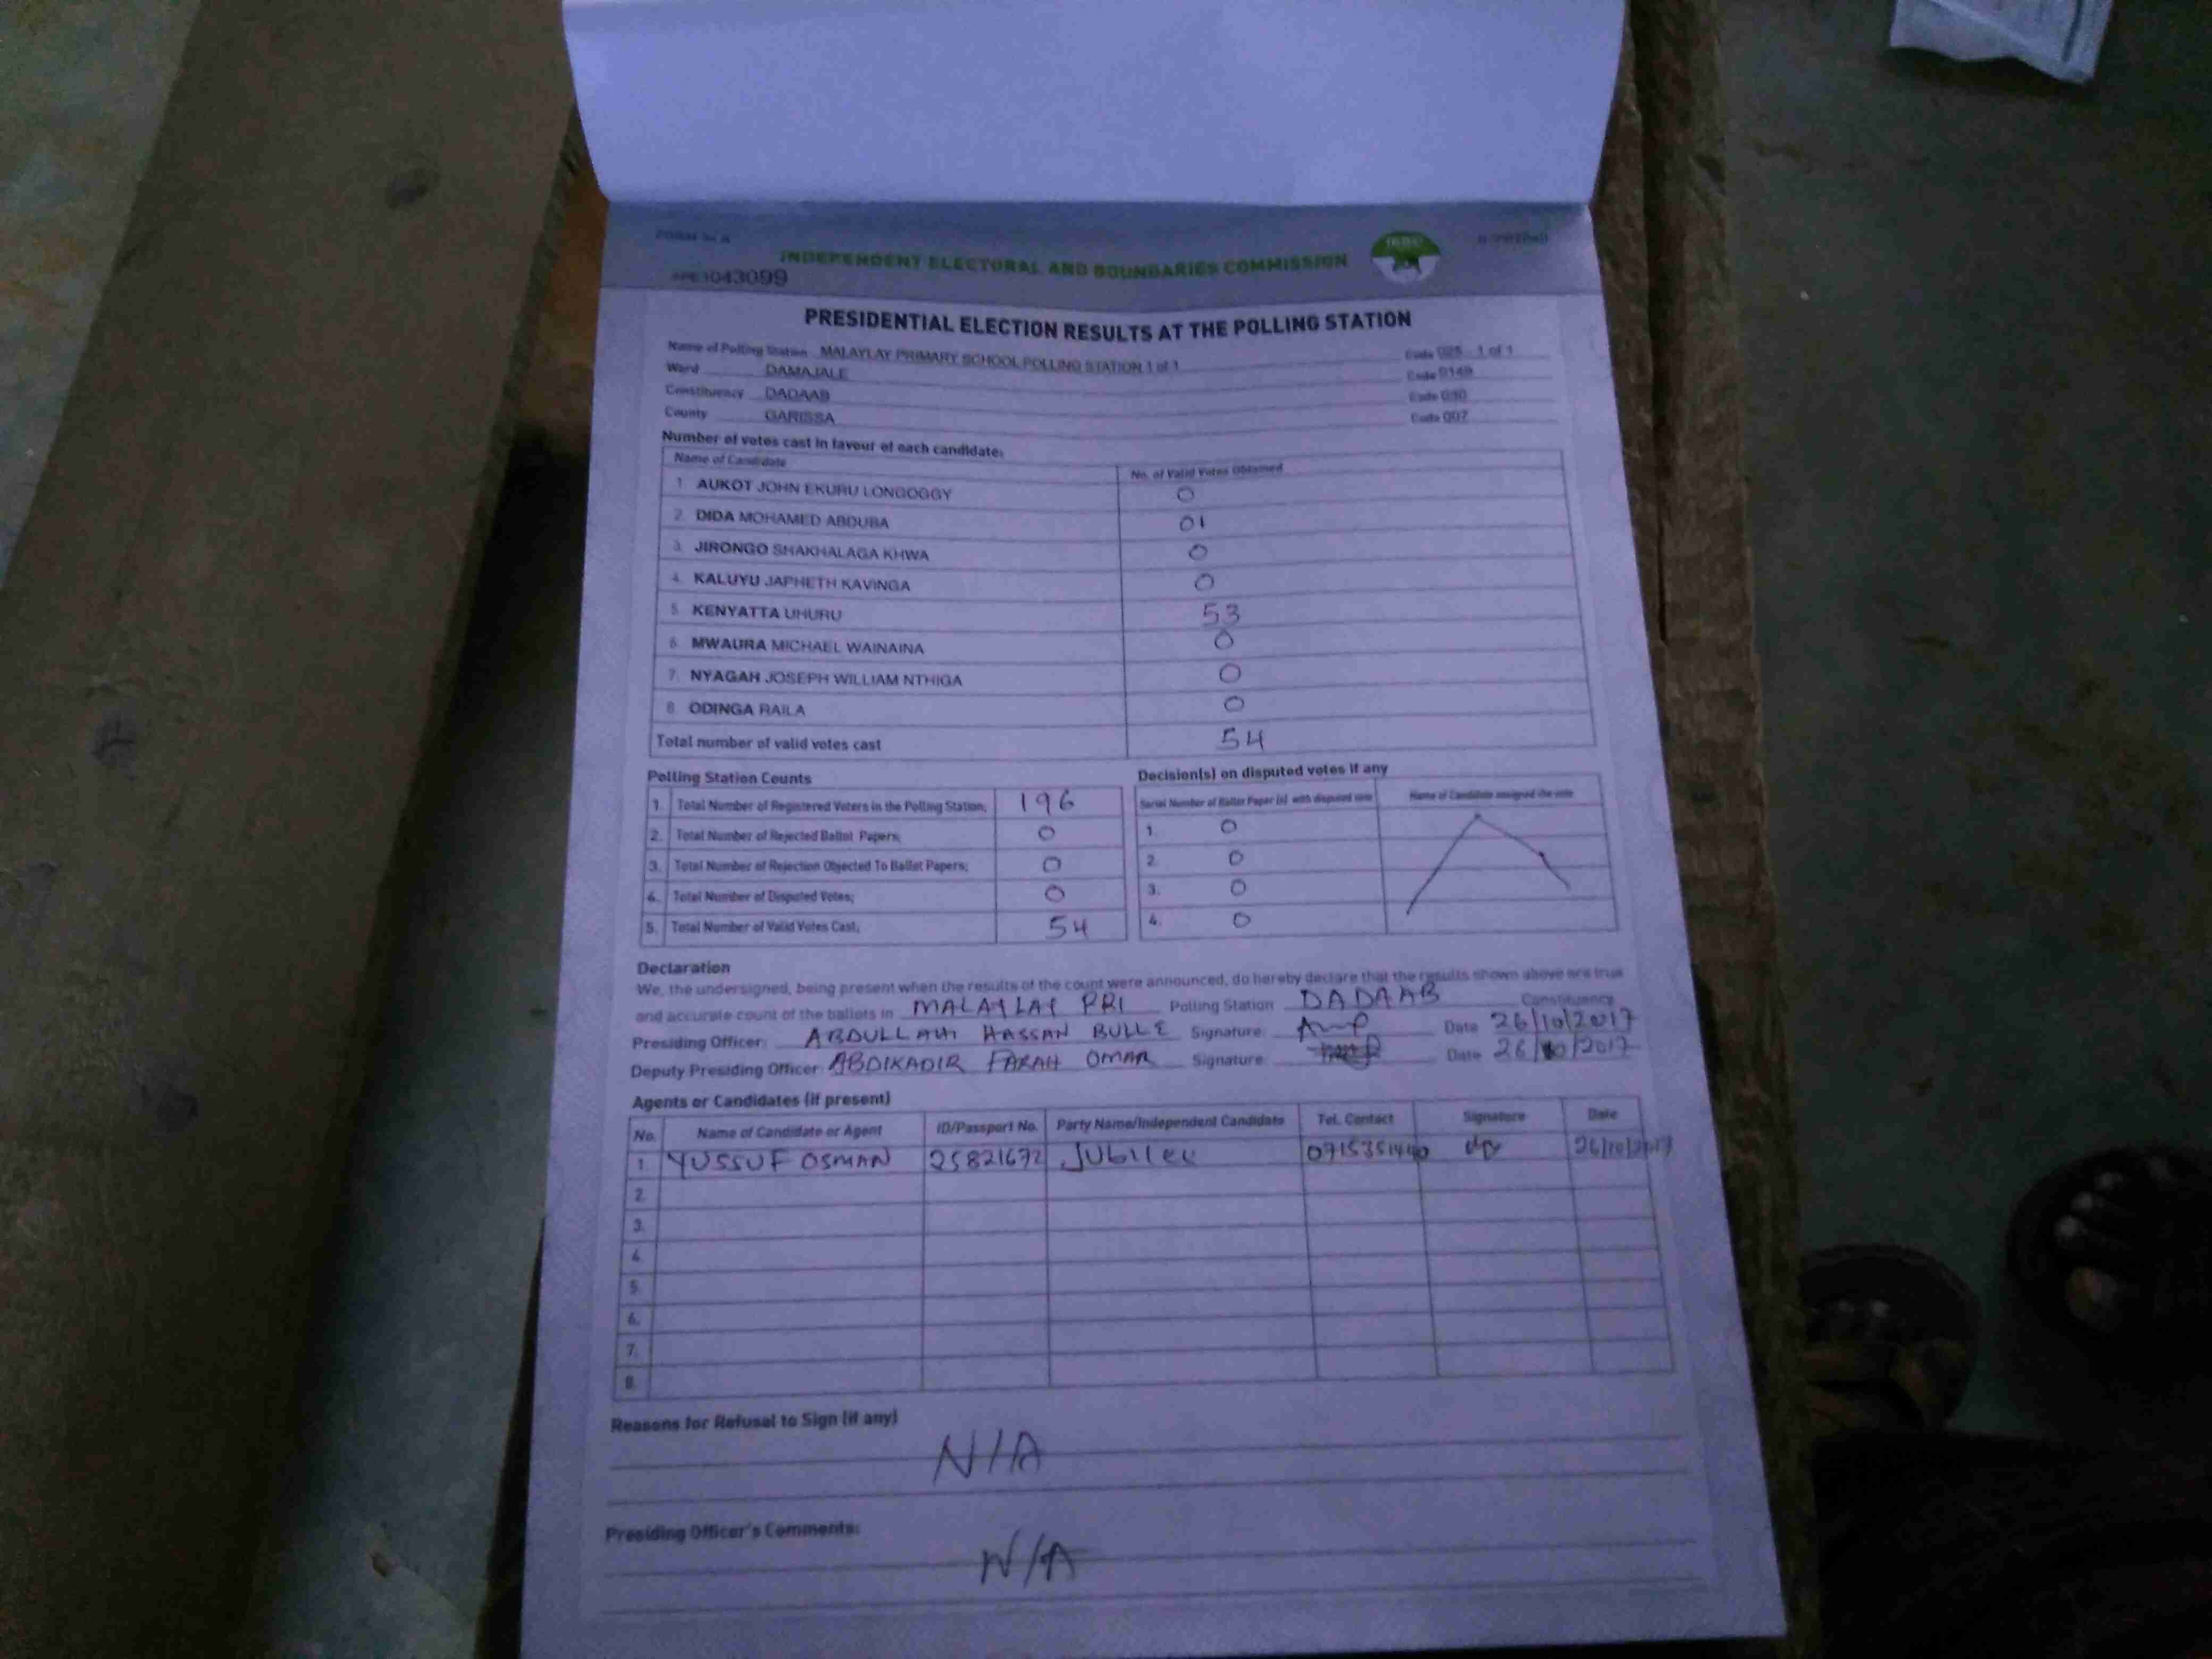 FORM 34 A
INDEPENDENT ELECTORAL AND BOUNDARIES COMMISSION
IEBC
043099
PRESIDENTIAL ELECTION RESULTS AT THE POLLING STATION
Name of Polling Station MALAYLAY PRIMARY SCHOOL POLLING STATION 1 of 1 Code 025 1 of 1
Ward DAMAJALE Code 0149
Constituency DADAAB Code 030
County GARISSA Code 007
Number of votes cast in favour of each candidate:
Name of Candidate No. of Valid Votes Obtained
1. AUKOT JOHN EKURU LONGOGGY 0
2. DIDA MOHAMED ABDUBA 01
3. JIRONGO SHAKHALAGA KHWA 0
4. KALUYU JAPHETH KAVINGA 0
5. KENYATTA UHURU 53
6. MWAURA MICHAEL WAINAINA 0
7. NYAGAH JOSEPH WILLIAM NTHIGA 0
8. ODINGA RAILA 0
Total number of valid votes cast 54
Polling Station Counts
1. Total Number of Registered Voters in the Polling Station; 196
2. Total Number of Rejected Ballot Papers; 0
3. Total Number of Rejection Objected To Ballot Papers; 0
4. Total Number of Disputed Votes; 0
5. Total Number of Valid Votes Cast; 54
Decision(s) on disputed votes if any
Serial Number of Ballot Paper (s) with disputed vote Name of Candidate assigned the vote
1. 0
2. 0
3. 0
4. 0
Declaration
We, the undersigned, being present when the results of the count were announced, do hereby declare that the results shown above are true
and accurate count of the ballots in MALAYLAY PRI Polling Station DADAAB Constituency
Presiding Officer: ABDULLAHI HASSAN BULLE Signature: Date 26/10/2017
Deputy Presiding Officer: ABDIKADIR FARAH OMAR Signature: Date 26/10/2017
Agents or Candidates (if present)
No. Name of Candidate or Agent ID/Passport No. Party Name/Independent Candidate Tel. Contact Signature Date
1. YUSSUF OSMAN 25821672 Jubilee 0715351440 26/10/2017
2.
3.
4.
5.
6.
7.
8.
Reasons for Refusal to Sign (if any)
N/A
Presiding Officer's Comments:
N/A